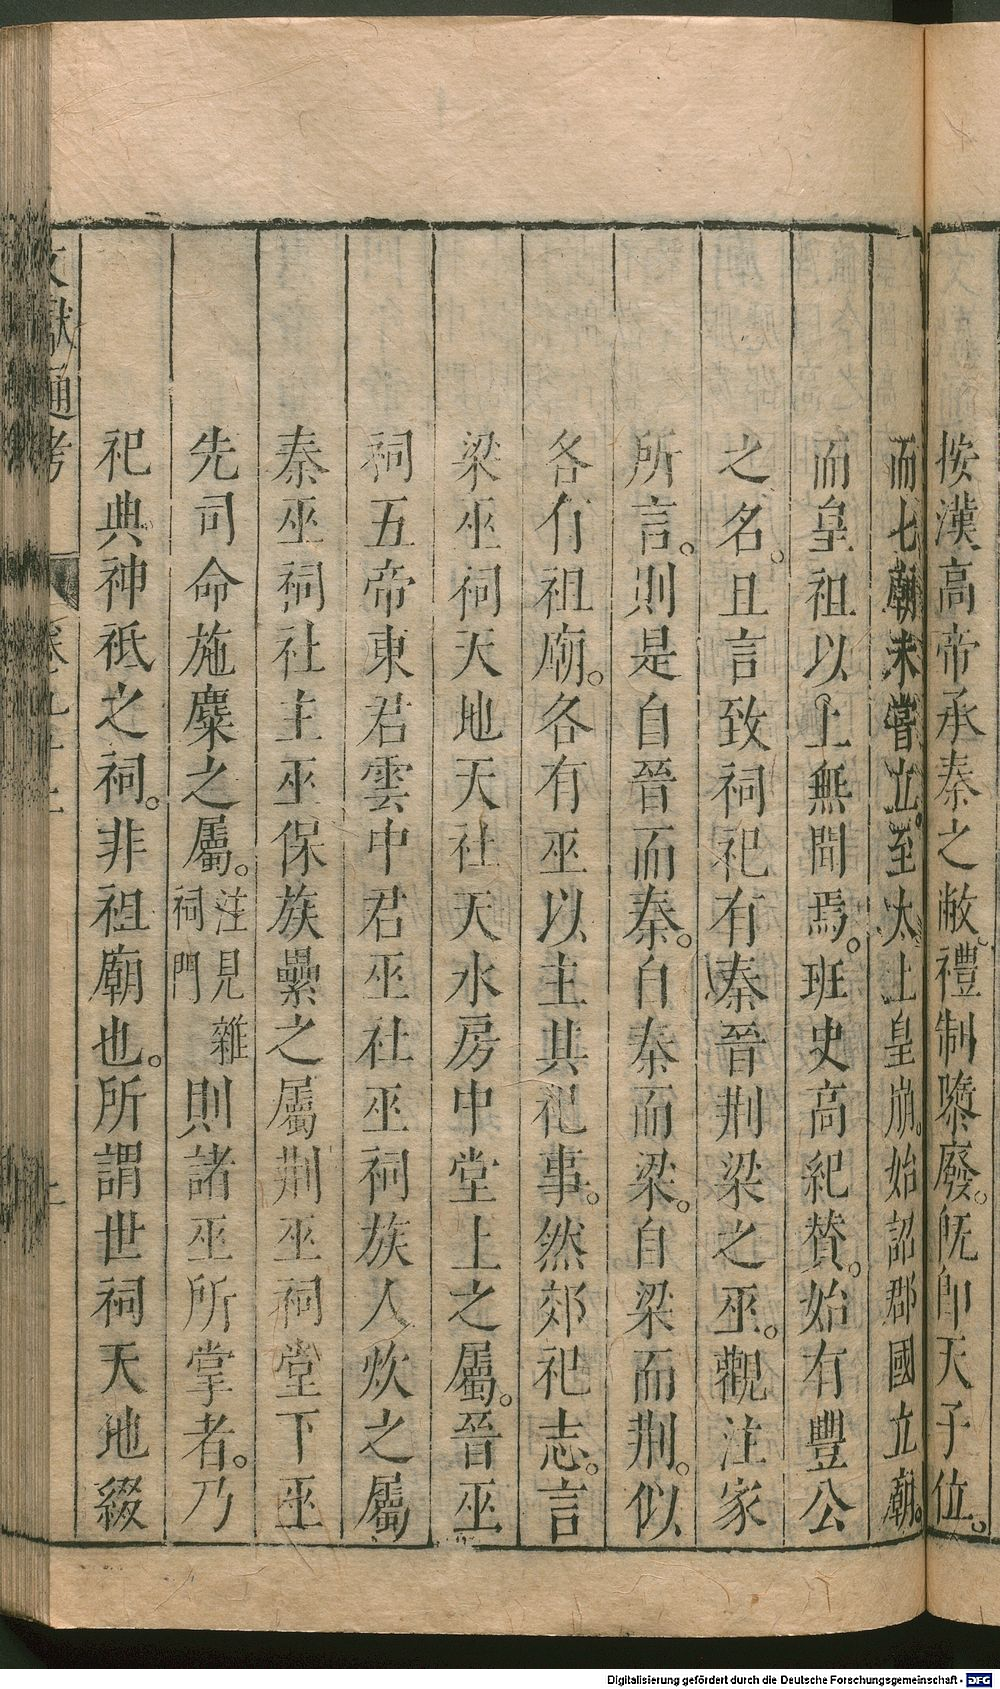 按漢高帝承秦之敝禮制隳廢。旣卽天子位。
而七廟未嘗立。至太上皇崩。始詔郡國立廟。
而皇祖以上無聞焉。班史高紀贊。始有豐公
之名。且言致祠祀有秦晉荆梁之巫。觀注家
所言。則是自晉而秦。自秦而梁。自梁而荆。似
各有祖廟。各有巫以主其祀事。然郊祀志。言
梁巫祠天地天社天水房中堂上之屬。晉巫
祠五帝東君雲中君巫社巫祠族人炊之屬
秦巫祠社主巫保族纍之屬荆巫祠堂下巫
先司命施糜之屬。注見雜祠門則諸巫所掌者。乃
祀典神祇之祠。非祖廟也。所謂世祠天地綴
文獻通考 卷九十二
Digitalisierung gefördert durch die Deutsche Forschungsgemeinschaft - DFG